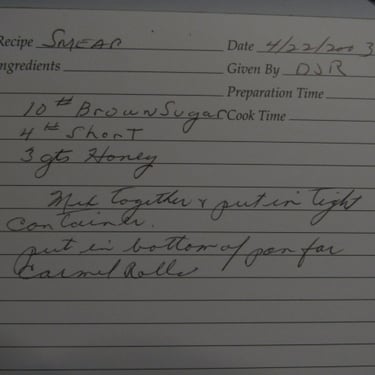 Recipe Smear Date 4/22/2003
Ingredients Given By DJR
Preparation Time
10# Brown Sugar Cook Time
4# Short
3 qts Honey
Mix together & put in tight
container.
put in bottom of pan for
Carmel Rolls